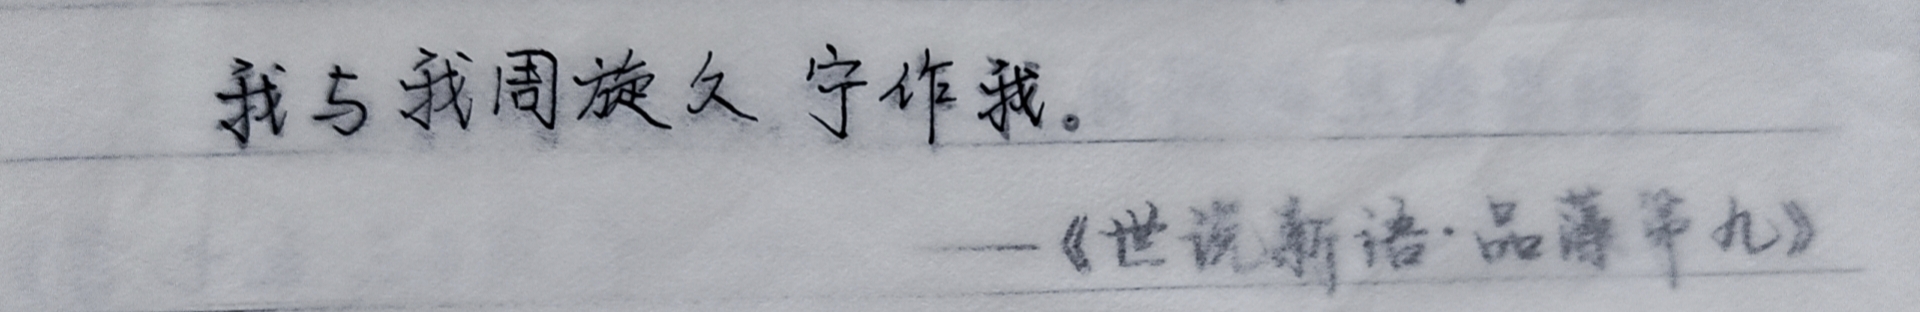 我与我周旋久 宁作我。
——《世说新语·品藻第九》